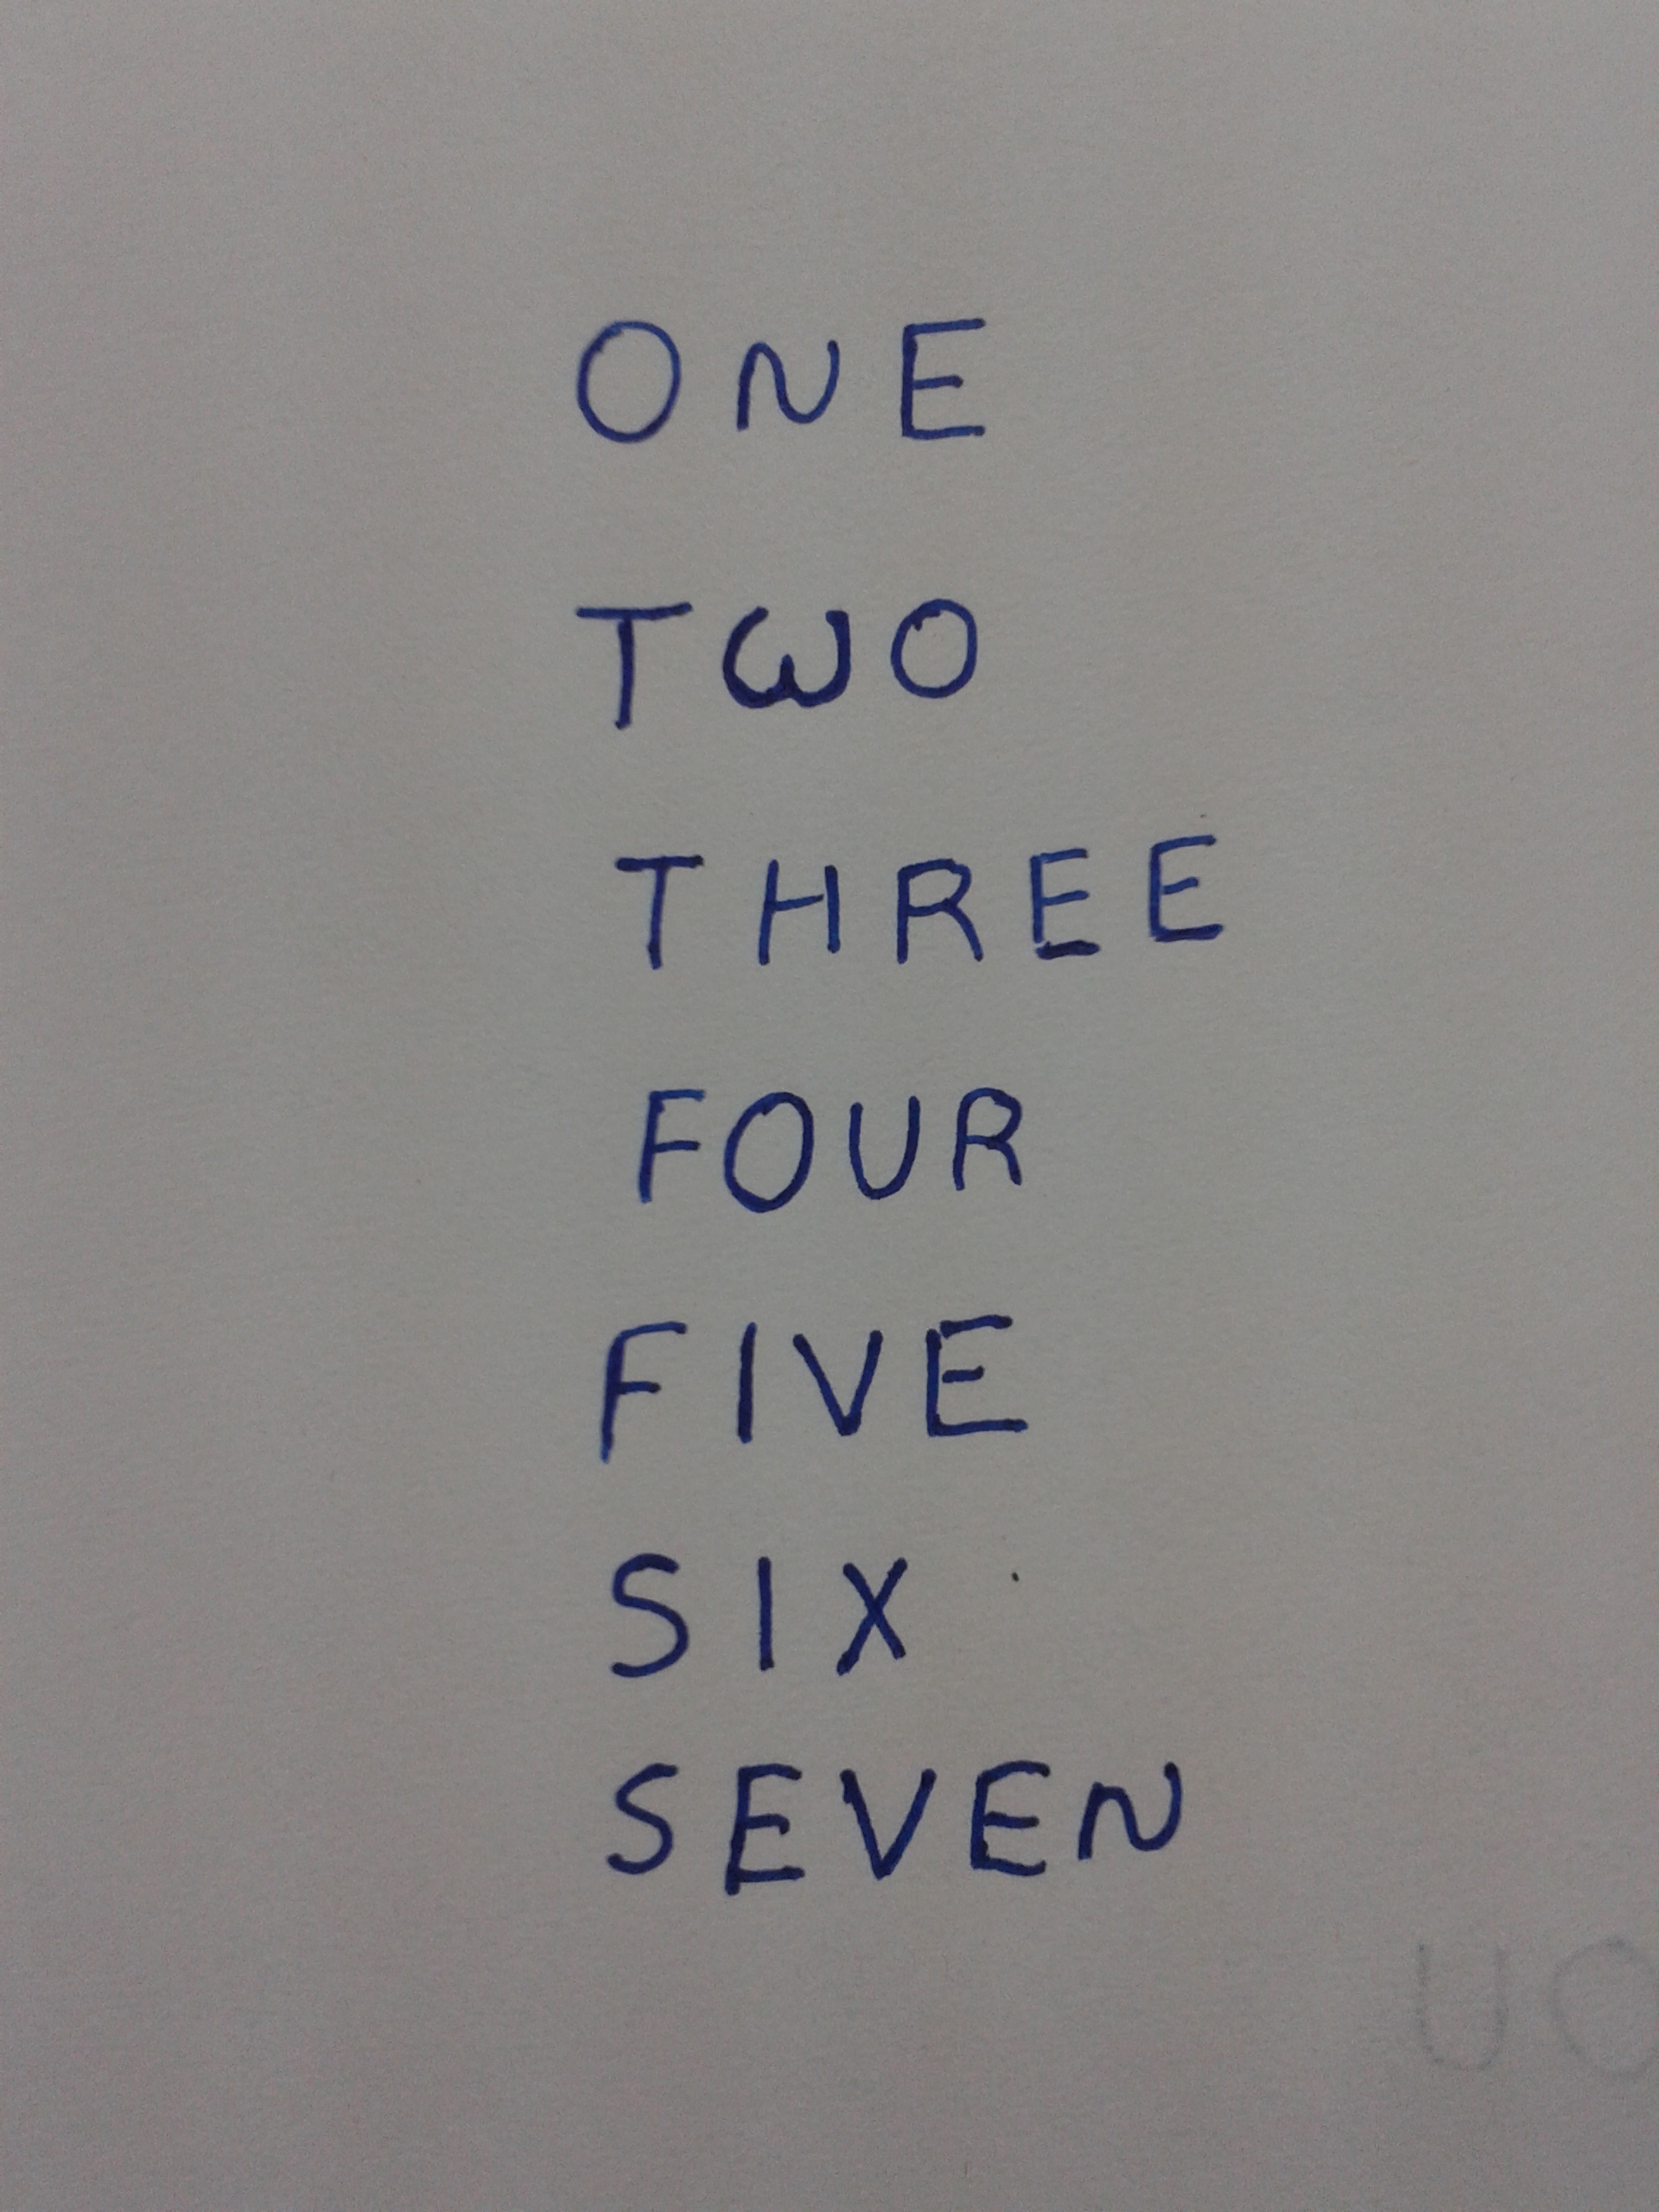 ONE
TWO
THREE
FOUR
FIVE
SIX
SEVEN